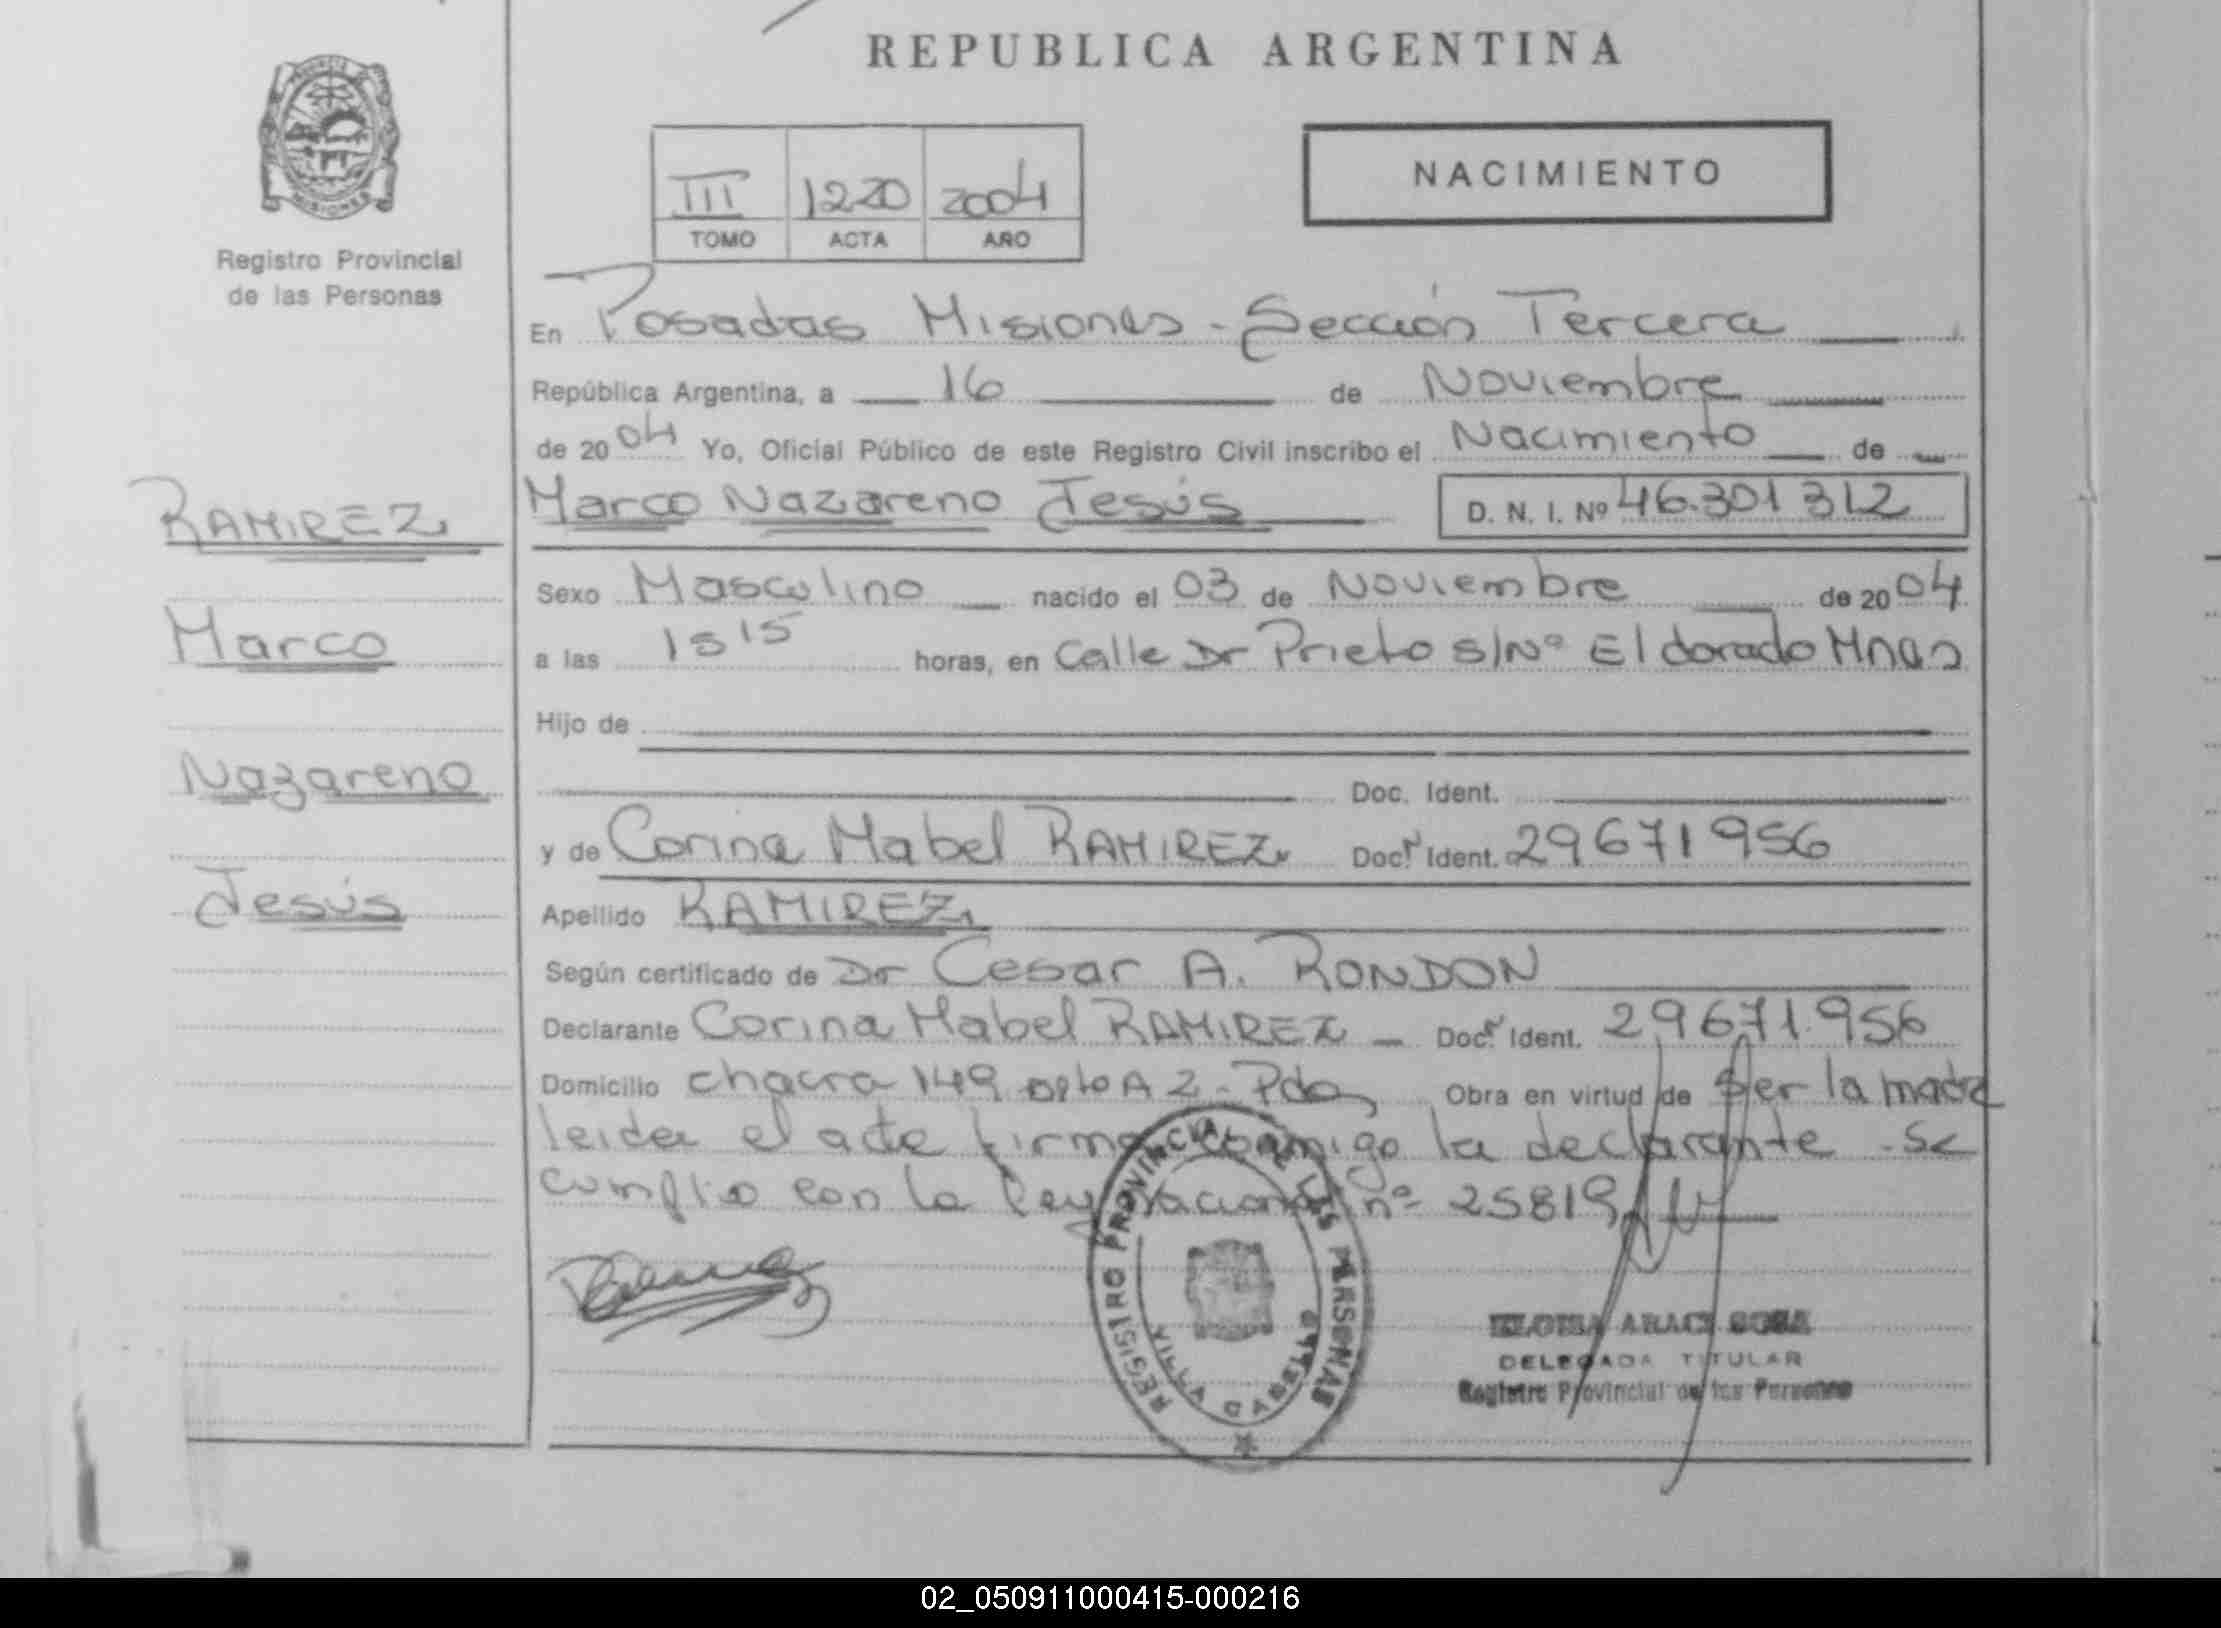 REPUBLICA ARGENTINA
PROVINCIA DE
MISIONES
Registro Provincial
de las Personas
III 1220 2004
TOMO ACTA AÑO
NACIMIENTO
En Posadas Misiones - Sección Tercera
República Argentina, a 16 de Noviembre
de 2004 Yo, Oficial Público de este Registro Civil inscribo el Nacimiento de
Marco Nazareno Jesús D. N. I. Nº 46.301 312
RAMIREZ
Marco
Nazareno
Jesús
Sexo Masculino nacido el 03 de Noviembre de 2004
a las 1515 horas, en Calle Dr Prieto S/Nº Eldorado Mnes
Hijo de
Doc. Ident.
y de Corina Mabel RAMIREZ Doc. Ident. 29671956
Apellido RAMIREZ
Según certificado de Dr Cesar A. RONDON
Declarante Corina Mabel RAMIREZ Doc. Ident. 29671.956
Domicilio chacra 149 Dpto A 2 - Pdas Obra en virtud de Ser la madre
leida el acta firma conmigo la declarante - Se
cumplio con la Ley Nacional nº 25819
REGISTRO PROVINCIAL DE LAS PERSONAS
VILLA CABELLO
DELEGADA TITULAR
Registro Provincial de las Personas
02_050911000415-000216